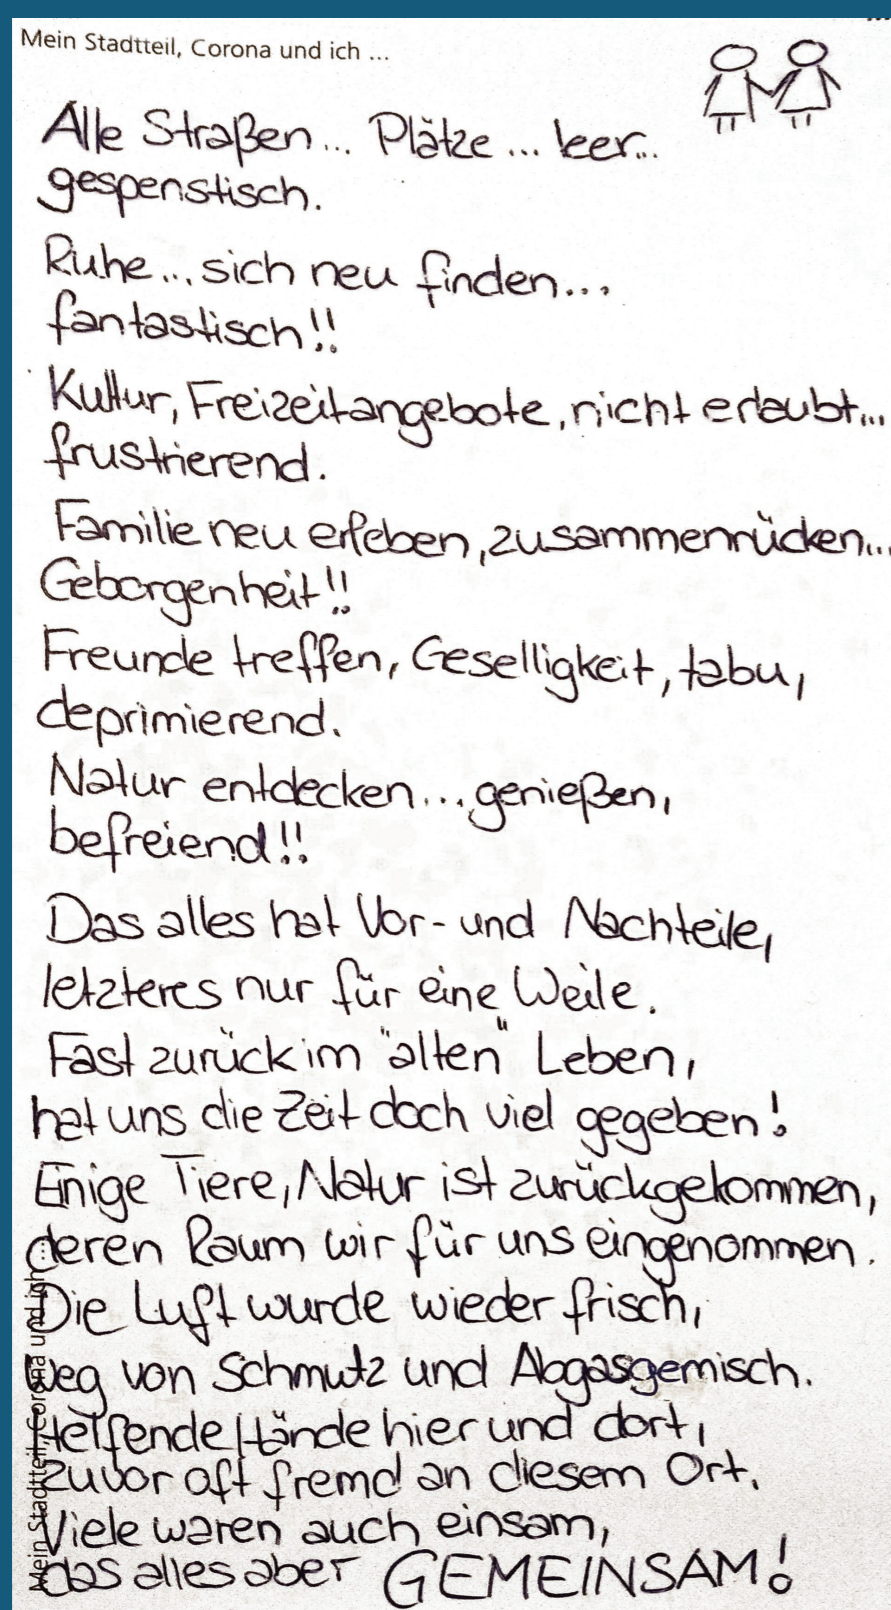 Mein Stadtteil, Corona und ich ...
Alle Straßen... Plätze ... leer...
gespenstisch.
Ruhe... sich neu finden...
fantastisch!!
Kultur, Freizeitangebote, nicht erlaubt...
frustrierend.
Familie neu erleben, zusammenrücken...
Geborgenheit!!
Freunde treffen, Geselligkeit, tabu,
deprimierend.
Natur entdecken... genießen,
befreiend!!
Das alles hat Vor- und Nachteile,
letzteres nur für eine Weile.
Fast zurück im "alten" Leben,
hat uns die Zeit doch viel gegeben!
Einige Tiere, Natur ist zurückgekommen,
deren Raum wir für uns eingenommen.
Die Luft wurde wieder frisch,
Weg von Schmutz und Abgasgemisch.
Helfende Hände hier und dort,
Zuvor oft fremd an diesem Ort.
Viele waren auch einsam,
das alles aber GEMEINSAM!
Mein Stadtteil, Corona und ich ...